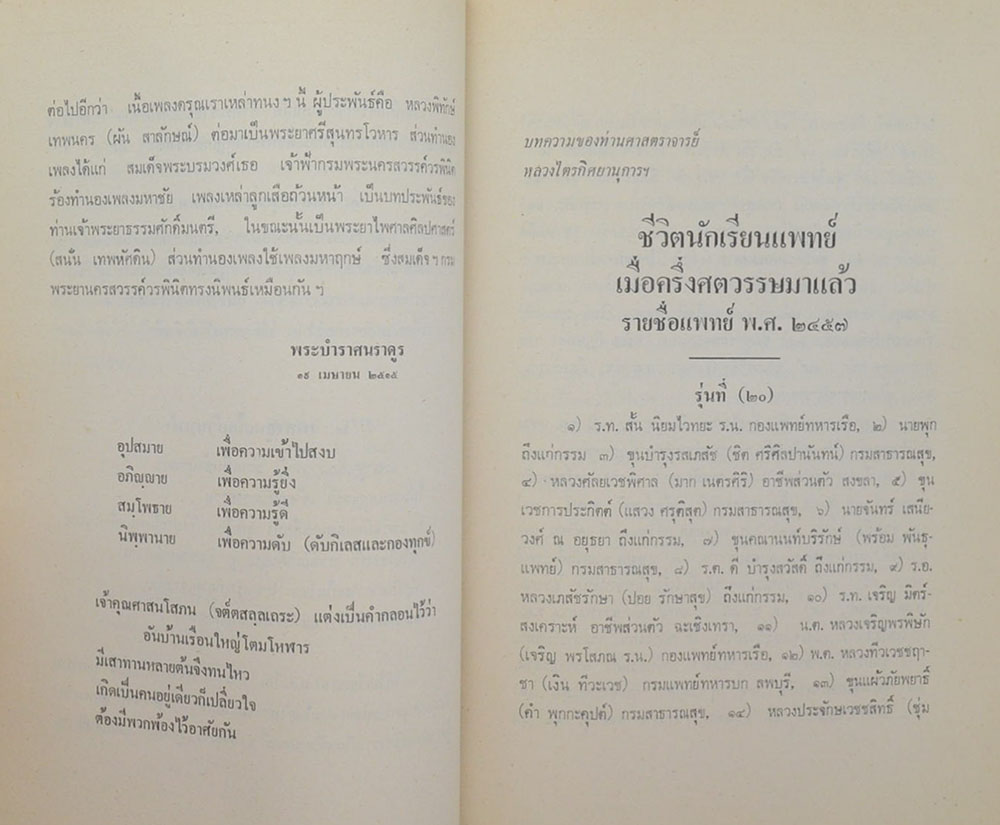 ต่อไปอีกว่า เนื้อเพลงดรุณเราเหล่าทนง ฯ นี้ ผู้ประพันธ์คือ หลวงพิทักษ์
เทพนคร (ผัน สาลักษณ์) ต่อมาเป็นพระยาศรีสุนทรโวหาร ส่วนทำนอง
เพลงได้แก่ สมเด็จพระบรมวงศ์เธอ เจ้าฟ้ากรมพระนครสวรรค์วรพินิต
ร้องทำนองเพลงมหาชัย เพลงเหล่าลูกเสือถ้วนหน้า เป็นบทประพันธ์ของ
ท่านเจ้าพระยาธรรมศักดิ์มนตรี, ในขณะนั้นเป็นพระยาไพศาลศิลปศาสตร์
(สนั่น เทพหัศดิน) ส่วนทำนองเพลงใช้เพลงมหาฤกษ์ ซึ่งสมเด็จ ฯ กรม
พระยานครสวรรค์วรพินิตทรงนิพนธ์เหมือนกัน ฯ
พระบำราศนราดูร
๑๙ เมษายน ๒๕๑๕
อุปสมาย เพื่อความเข้าไปสงบ
อภิญฺญาย เพื่อความรู้ยิ่ง
สมฺโพธาย เพื่อความรู้ดี
นิพฺพานาย เพื่อความดับ (ดับกิเลสและกองทุกข์)
เจ้าคุณศาสนโสภน (จตฺตสลฺลเถระ) แต่งเป็นคำกลอนไว้ว่า
อันบ้านเรือนใหญ่โตมโหฬาร
มีเสาทานหลายต้นจึงทนไหว
เกิดเป็นคนอยู่เดียวก็เปลี่ยวใจ
ต้องมีพวกพ้องไว้อาศัยกัน
บทความของท่านศาสตราจารย์
หลวงไตรกิศยานุการฯ
ชีวิตนักเรียนแพทย์
เมื่อครึ่งศตวรรษมาแล้ว
รายชื่อแพทย์ พ.ศ. ๒๔๕๗
รุ่นที่ (๒๐)
๑) ร.ท. สั้น นิยมไวทยะ ร.น. กองแพทย์ทหารเรือ, ๒) นายพุก
ถึงแก่กรรม ๓) ขุนบำรุงรสเภสัช (ชิต ศรีศิลปานันทน์) กรมสาธารณสุข,
๔) หลวงศัลยเวชพิศาล (มาก เนตรศิริ) อาชีพส่วนตัว สงขลา, ๕) ขุน
เวชการประกิตต์ (แสวง ศรุติสุต) กรมสาธารณสุข, ๖) นายจันทร์ เสนีย-
วงศ์ ณ อยุธยา ถึงแก่กรรม, ๗) ขุนคณานนท์บริรักษ์ (พร้อม พันธุ-
แพทย์) กรมสาธารณสุข, ๘) ร.ต. ดี บำรุงสวัสดิ์ ถึงแก่กรรม, ๙) ร.อ.
หลวงเภสัชรักษา (ปอย รักษาสุข) ถึงแก่กรรม, ๑๐) ร.ท. เจริญ มิตร์-
สงเคราะห์ อาชีพส่วนตัว ฉะเชิงเทรา, ๑๑) น.ต. หลวงเจริญพรพิษัก
(เจริญ พรโสภณ ร.น.) กองแพทย์ทหารเรือ, ๑๒) พ.ต. หลวงทิวเวชชฤา-
ชา (เงิน ทีวะเวช) กรมแพทย์ทหารบก ลพบุรี, ๑๓) ขุนแผ้วภัยพยาธิ์
(คำ พุกกะคุปต์) กรมสาธารณสุข, ๑๔) หลวงประจักษเวชชสิทธิ์ (ชุ่ม